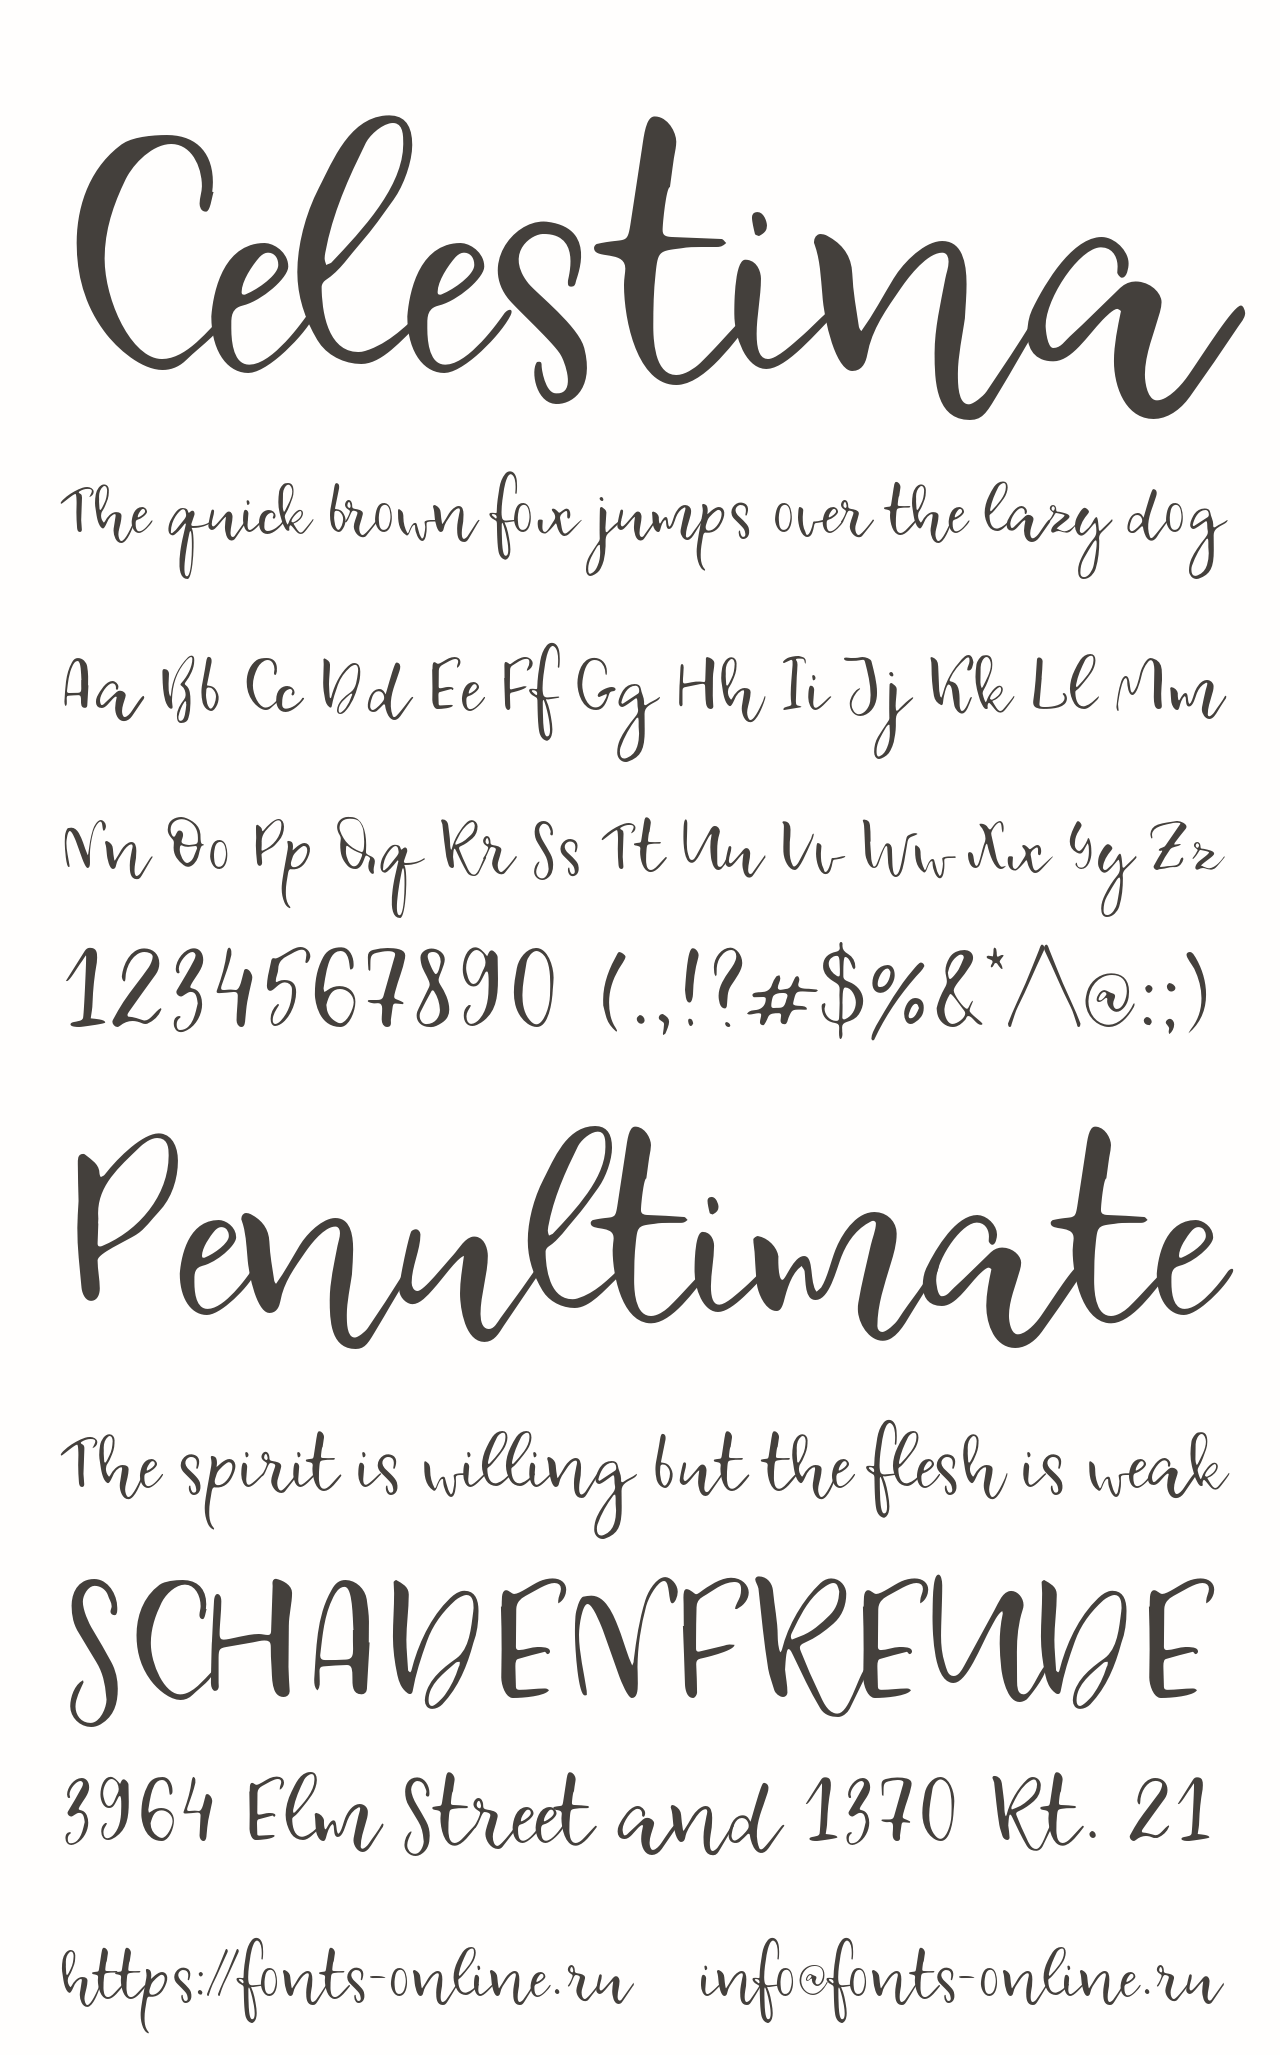 Celestina
The quick brown fox jumps over the lazy dog
Aa Bb Cc Dd Ee Ff Gg Hh Ii Jj Kk Ll Mm
Nn Oo Pp Qq Rr Ss Tt Uu Vv Ww Xx Yy Zz
1234567890 (.,!?#$%&*^@:;)
Penultimate
The spirit is willing but the flesh is weak
SCHADENFREUDE
3964 Elm Street and 1370 Rt. 21
https://fonts-online.ru info@fonts-online.ru